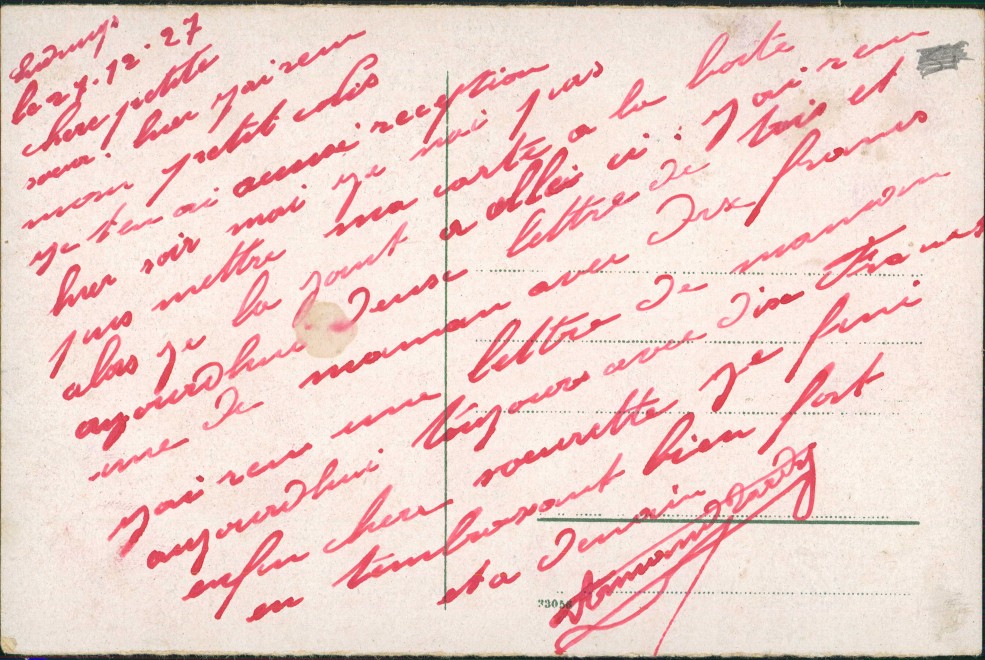 le 29.12.27
chere petite
sœur. hier j'ai reçu
mon petit colis
je t'en ai accusé reception
hier soir moi je n'ai pas
pus mettre ma carte a la boite
alors je la joint a celle ci. j'ai reçu
aujourdhui deux lettre de toi et
une de maman avec dix francs
j'ai reçu une lettre de maman
aujourdhui toujours avec dix francs
enfin chere sourette je fini
en tembrassant bien fort
et a demain
Armand
33056